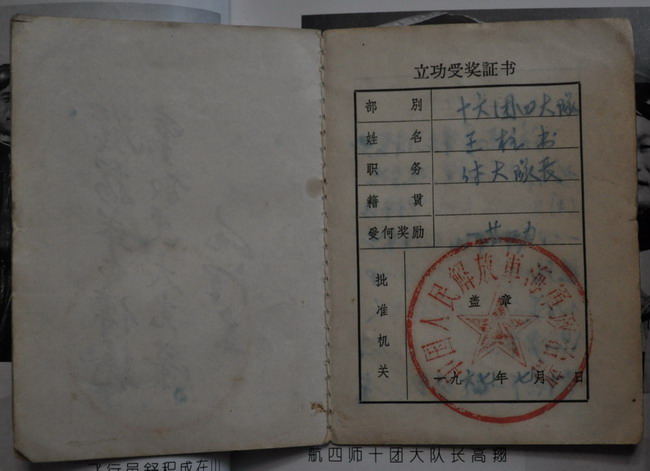 立功受奖証书
部別 十六团四大队
姓名 王柱书
职务 付大队长
籍貫
受何奖励
批准机关
中国人民解放軍海軍
盖章
一九六七年七月 日
飞行员舒积成在
航四师十团大队长高翔